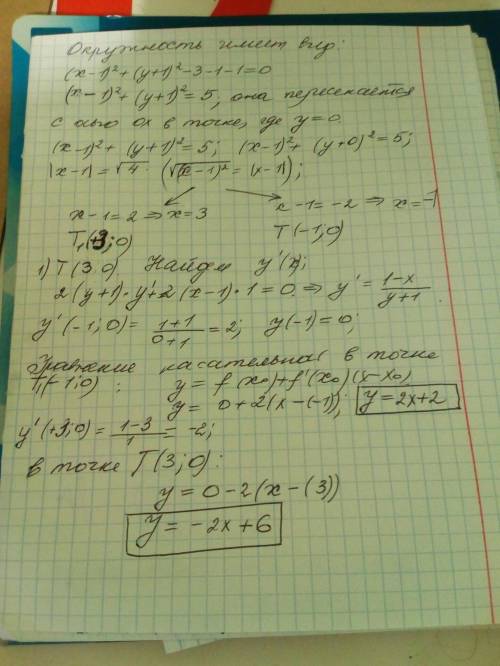 Окружность имеет вид:
(x-1)²+(y+1)²-3-1-1=0
(x-1)²+(y+1)²=5, она пересекается
с осью Ox в точке, где y=0.
(x-1)²+(y+1)²=5; (x-1)²+(y+0)²=5;
|x-1|=√4. (√(x-1)²=|x-1|);
x-1=2 ⇒ x=3 x-1=-2 ⇒ x=-1
T₁(+3;0) T(-1;0)
1) T(3.0) Найдем y'(x);
2(y+1)·y'+2(x-1)·1=0 ⇒ y'=(1-x)/(y+1)
y'(-1;0)=(1+1)/(0+1)=2; y(-1)=0;
Уравнение касательная в точке
T₁(-1;0): y=f(x₀)+f'(x₀)(x-x₀)
y=0+2(x-(-1)); y=2x+2
y'(+3;0)=(1-3)/1=-2;
в точке T(3;0):
y=0-2(x-(3))
y=-2x+6